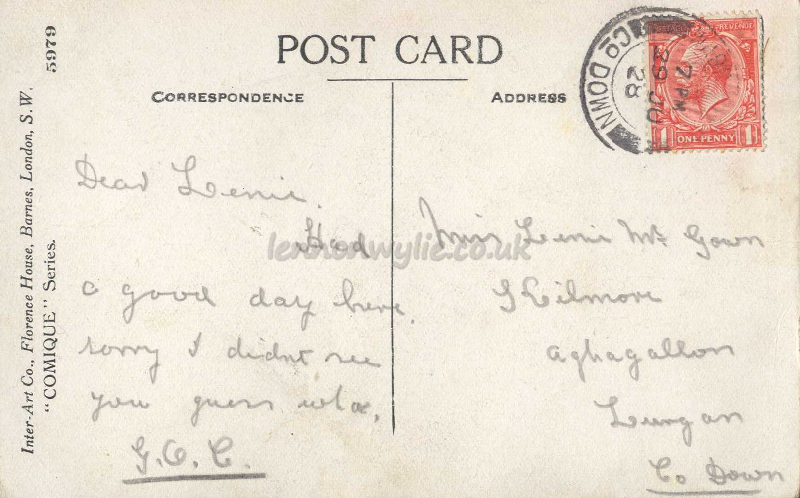 POST CARD
CORRESPONDENCE
ADDRESS
Co DOWN
7 PM
28
REVENUE
1 ONE PENNY 1
Inter-Art Co., Florence House, Barnes, London, S.W.
"COMIQUE" Series.
5979
Dear Lenie.
Had
a good day here.
sorry I didnt see
you guess who.
G.O.C.
Miss Lenie Mc Gown
Kilmore
Aghagallon
Lurgan
Co Down
lennonwylie.co.uk